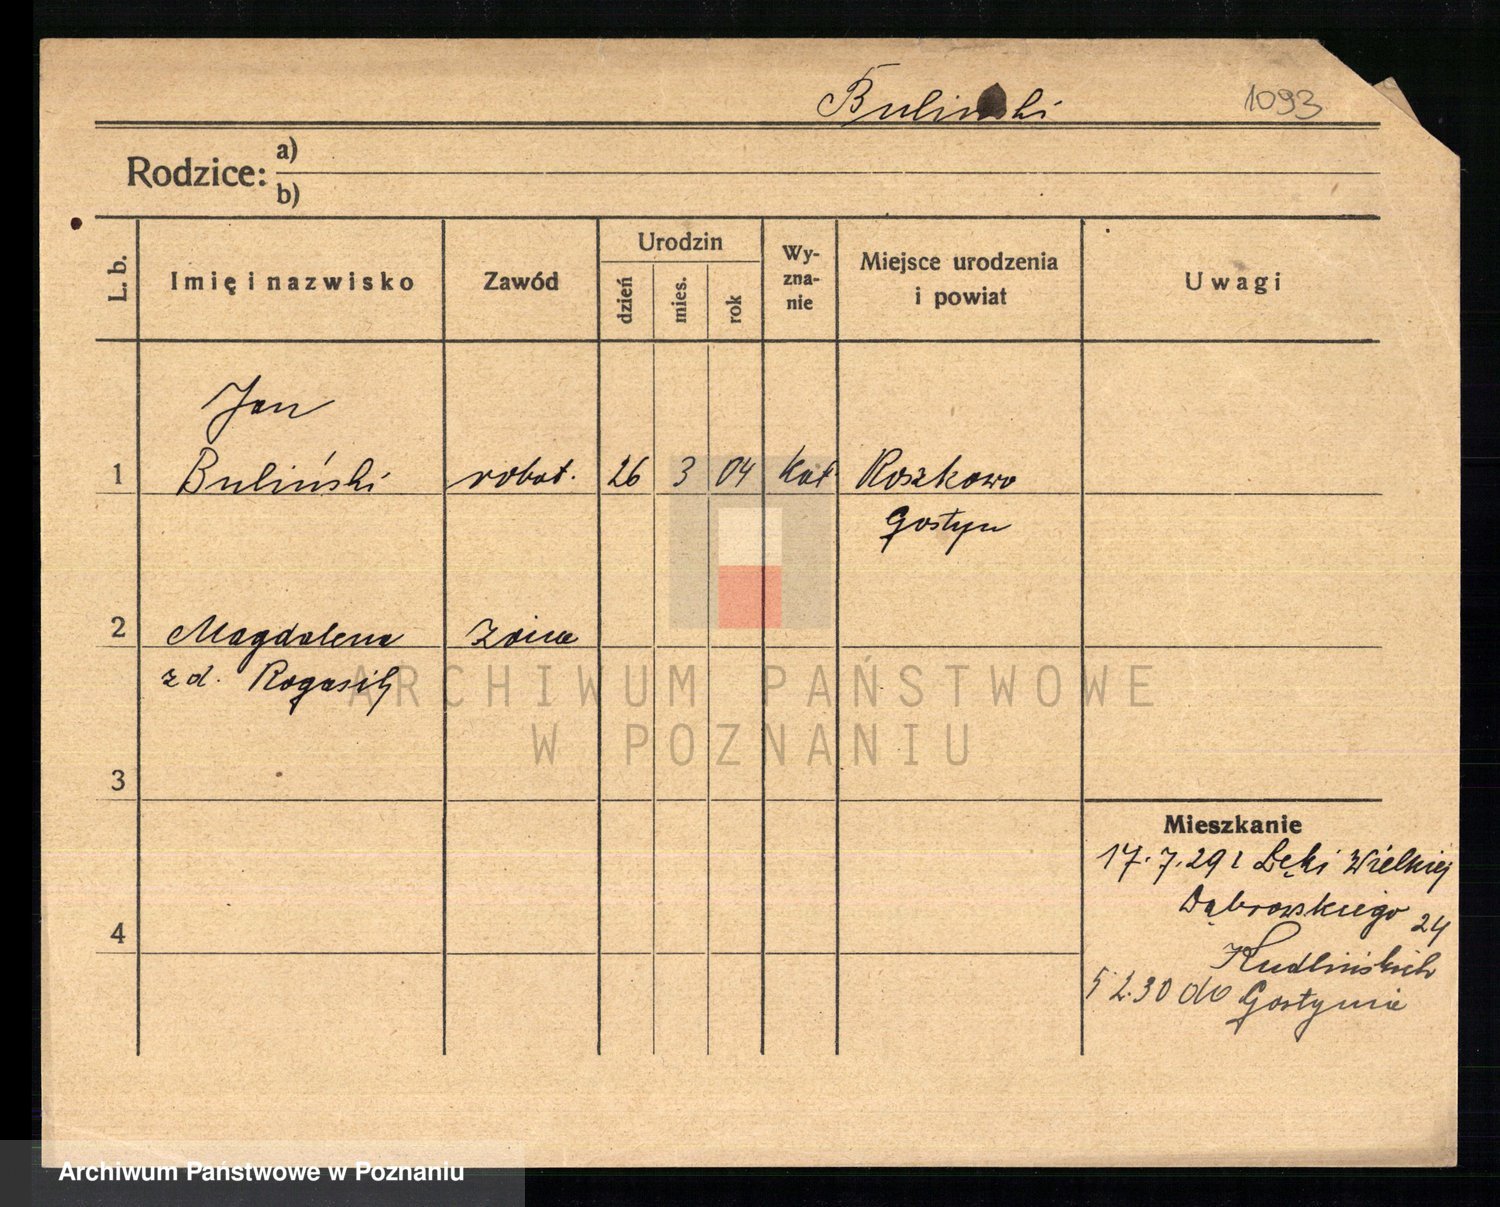 Buliński
1093
Rodzice: a)
b)
L. b.
Imię i nazwisko
Zawód
Urodzin
dzień
mies.
rok
Wy-
zna-
nie
Miejsce urodzenia
i powiat
Uwagi
Jan
1 Buliński robot. 26 3 04 kat Roszkowo
Gostyn
2 Magdalena
zd.
ARCHIWUM PAŃSTWOWE
W POZNANIU
3
Mieszkanie
17.7.29 z Łęki Wielkiej
Dąbrowskiego 24
4
5 2.30 do Gostynia
Archiwum Państwowe w Poznaniu